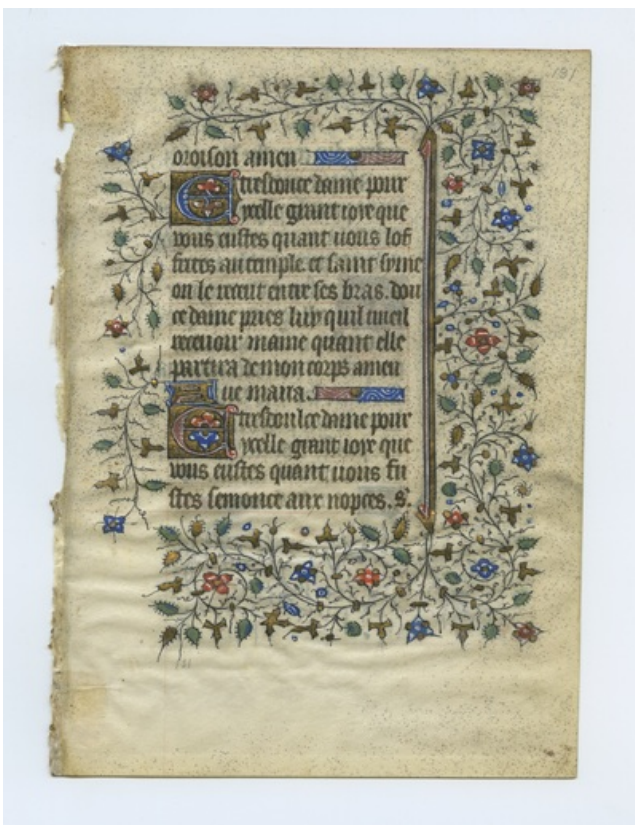 131
oroison amen
E tresdouce dame pour
ycelle grant ioye que
vous eustes quant uous lof
fretes au temple. et saint syme
on le receut entre ses bras. dou
ce dame pries luy quil uueil
receuoir mame quant elle
partira de mon corps amen
Aue maria.
E tresdoulce dame pour
ycelle grant ioye que
vous eustes quant uous fu
stes semonce aux nopces. s.